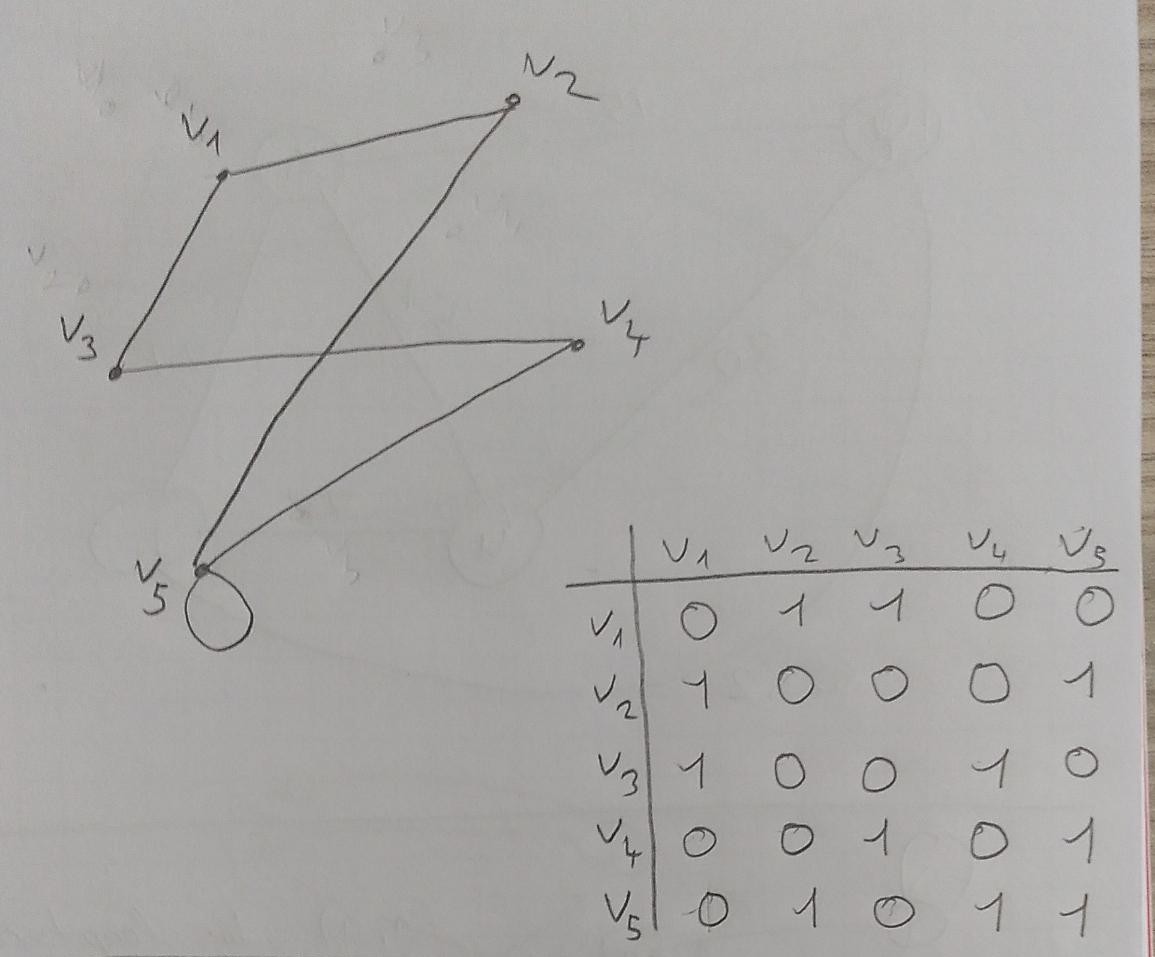 v2
v1
v4
v3
v5
v1 v2 v3 v4 v5
v1 0 1 1 0 0
v2 1 0 0 0 1
v3 1 0 0 1 0
v4 0 0 1 0 1
v5 0 1 0 1 1